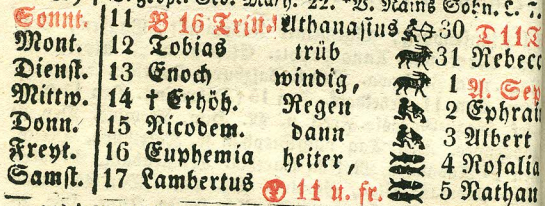 Sonnt. 11 B 16 Trin. Athanasius 30 D 11 T
Mont. 12 Tobias trüb 31 Rebecc
Dienst. 13 Enoch windig, 1 A. Sep
Mittw. 14 † Erhöh. Regen 2 Ephrai
Donn. 15 Nicodem. dann 3 Albert
Freyt. 16 Euphemia heiter, 4 Rosalia
Samst. 17 Lambertus 11 u. fr. 5 Nathan